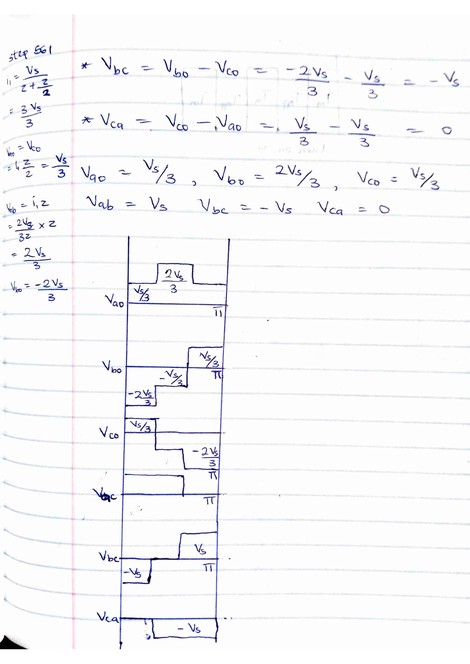 step 561
i₁ = Vs / (z + z/2)
= 3Vs / 3
Vao = Vco
= i₁ z/2 = Vs/3
Vob = i₁z
= 2Vs/3z × z
= 2Vs/3
Vbo = -2Vs/3
* Vbc = Vbo - Vco = -2Vs/3 - Vs/3 = -Vs
* Vca = Vco - Vao = Vs/3 - Vs/3 = 0
Vao = Vs/3 , Vbo = 2Vs/3 , Vco = Vs/3
Vab = Vs Vbc = -Vs Vca = 0
Vs/3 2Vs/3
Vao π
Vbo -2Vs/3 -Vs/3 Vs/3 π
Vco Vs/3 -2Vs/3 π
π
Vbc -Vs Vs π
Vca -Vs